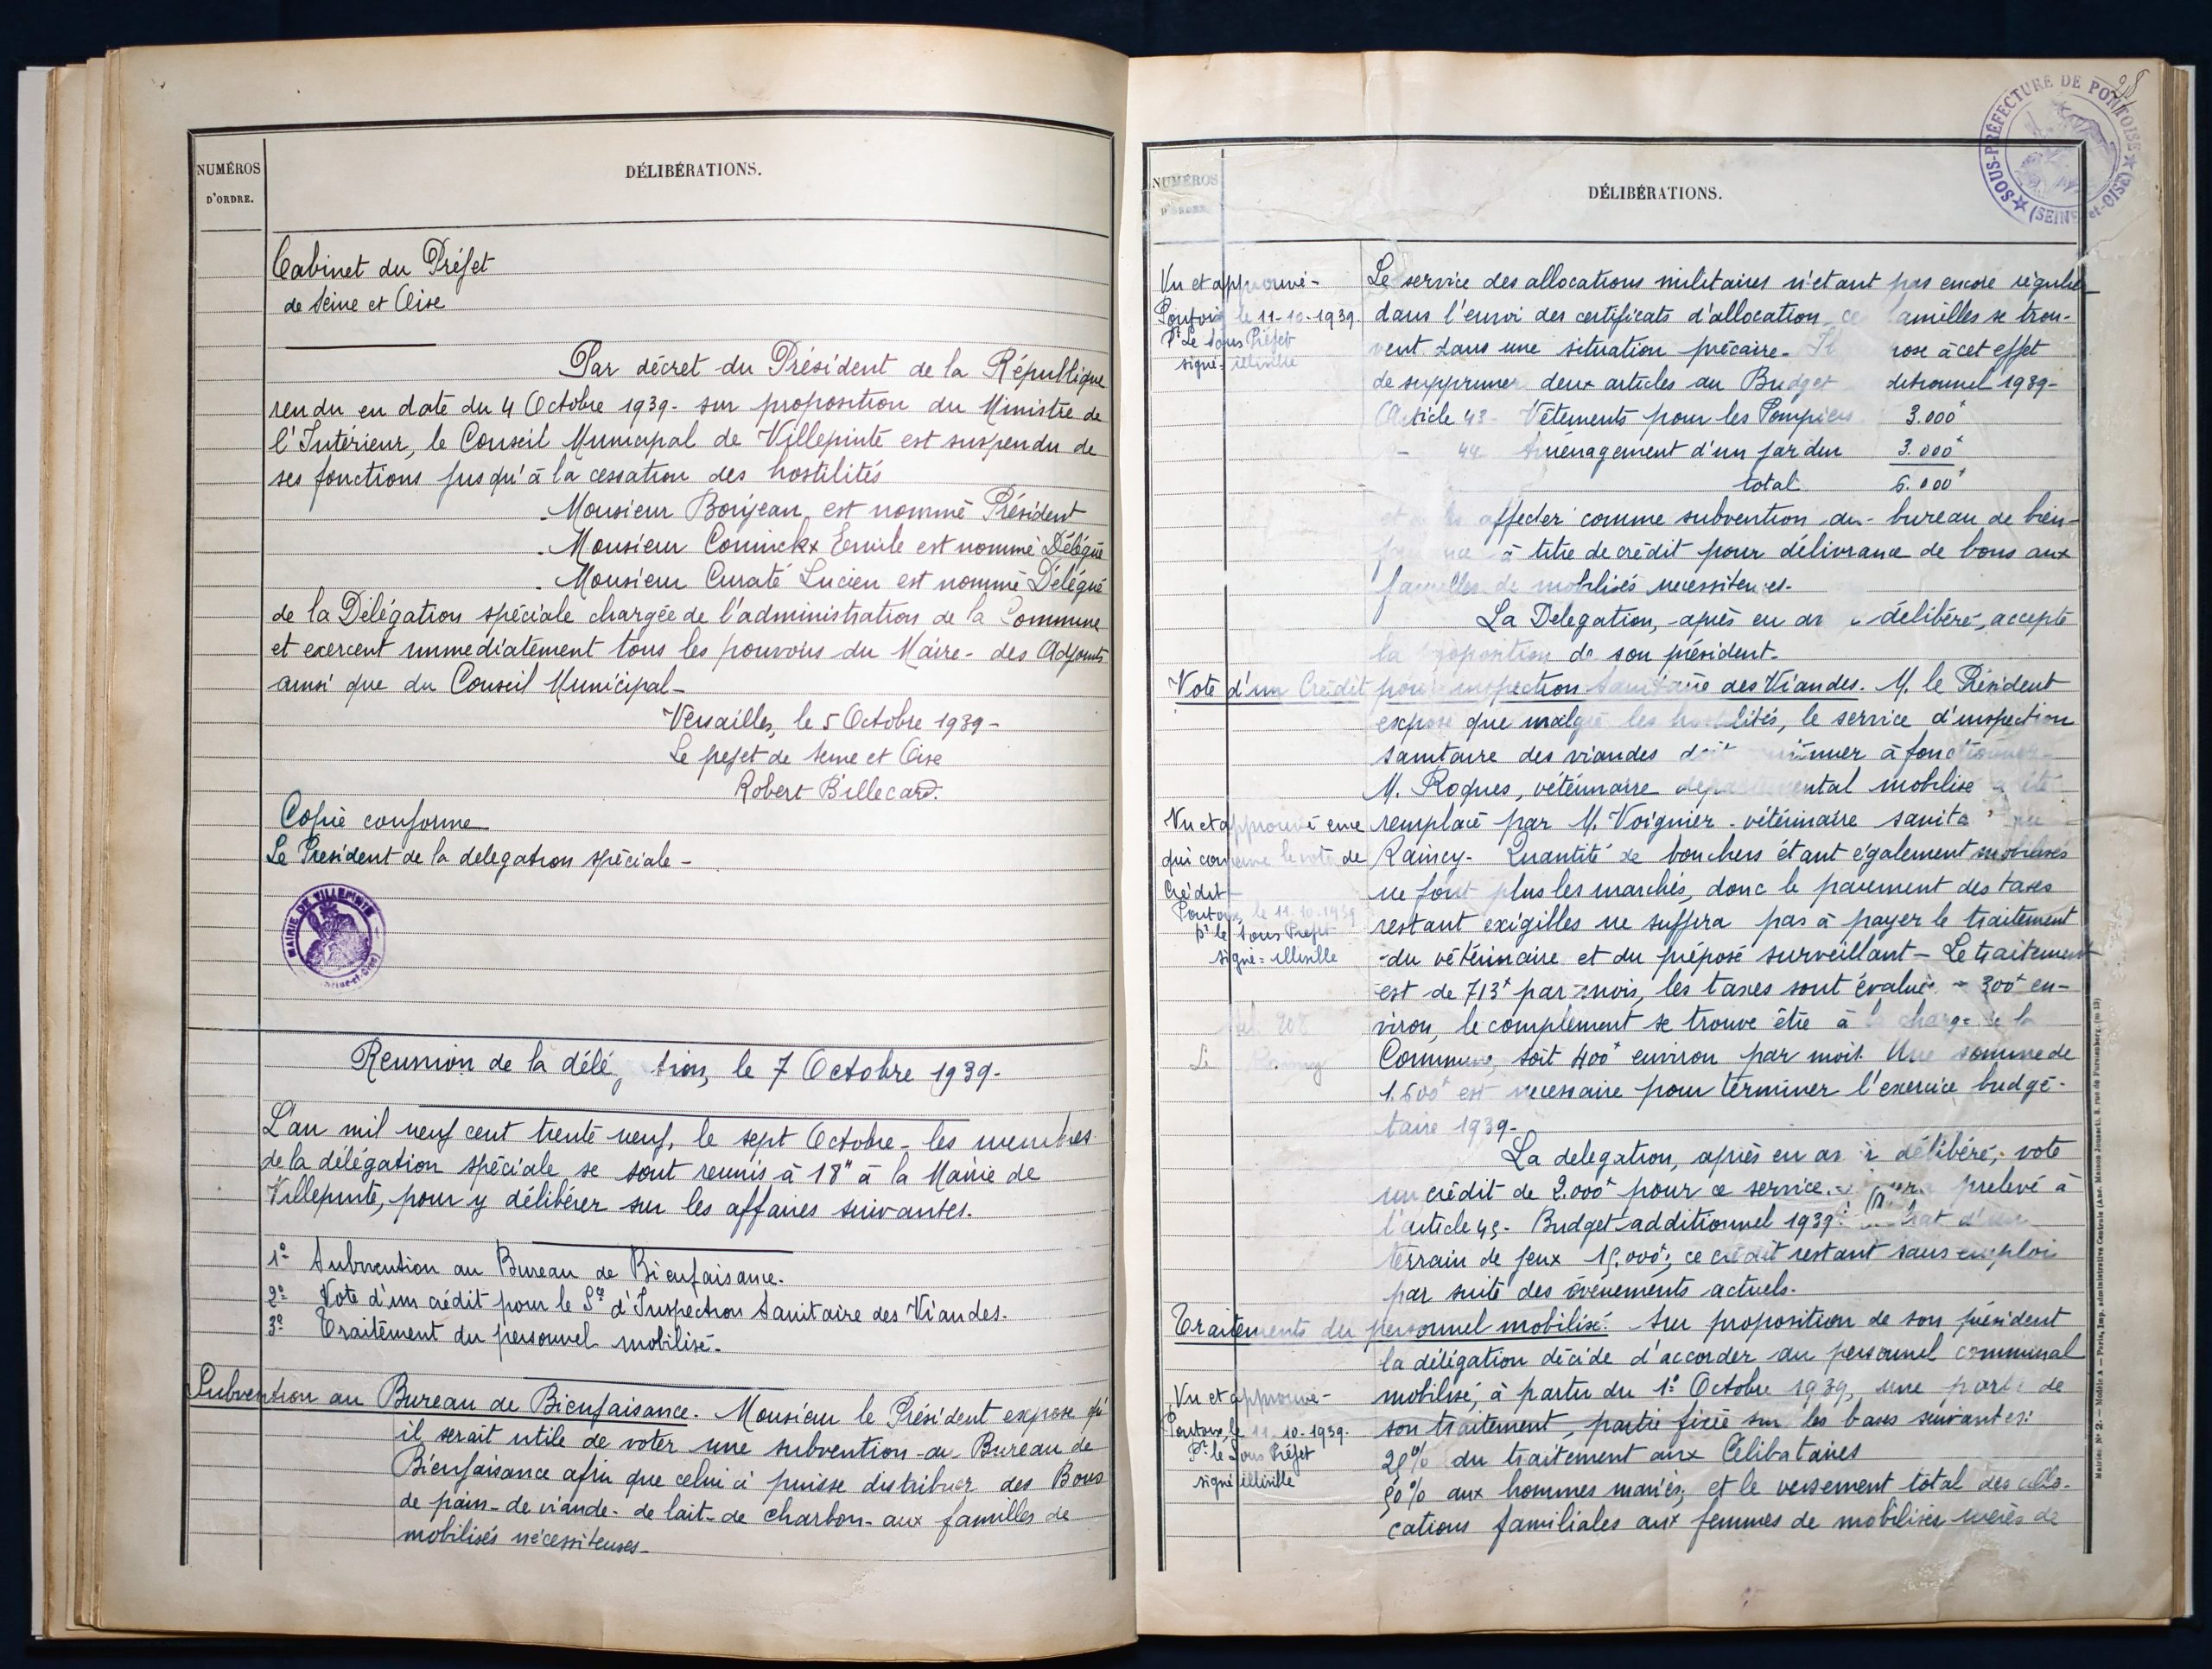 NUMÉROS
D'ORDRE.
DÉLIBÉRATIONS.
Cabinet du Préfet
de Seine et Oise
Par décret du Président de la République
rendu en date du 4 Octobre 1939- sur proposition du Ministre de
l'Intérieur, le Conseil Municipal de Villepinte est suspendu de
ses fonctions jusqu'à la cessation des hostilités
Monsieur Bonjean est nommé Président
Monsieur Coninckx Emile est nommé Délégué
Monsieur Curaté Lucien est nommé Délégué
de la Délégation spéciale chargée de l'administration de la Commune
et exercent immediatement tous les pouvoirs du Maire- des Adjoints
ainsi que du Conseil Municipal-
Versailles, le 5 Octobre 1939-
Le prefet de Seine et Oise
Robert Billecard.
Copie conforme
Le President de la delegation spéciale-
MAIRIE DE VILLEPINTE
(Seine-et-Oise)
Reunion de la délé tion, le 7 Octobre 1939-
L'an mil neuf cent trente neuf, le sept Octobre- les membres
de la délégation spéciale se sont reunis à 18" à la Mairie de
Villepinte, pour y délibérer sur les affaires suivantes.
1º Subvention au Bureau de Bienfaisance.
2º Vote d'un crédit pour le Sce d'Inspection Sanitaire des Viandes.
3º Traitement du personnel mobilisé-
Subvention au Bureau de Bienfaisance. Monsieur le Président expose qu'
il serait utile de voter une subvention au Bureau de
Bienfaisance afin que celui ci puisse distribuer des Bons
de pain- de viande- de lait- de charbon- aux familles de
mobilisés nécessiteuses-
28
SOUS-PRÉFECTURE DE PONTOISE
(SEINE-et-OISE)
NUMÉROS
D'ORDRE
DÉLIBÉRATIONS.
Vu et approuvé-
Pontoise le 11-10-1939.
Pr Le Sous Préfet
signé- illisible
Le service des allocations militaires n'étant pas encore régulier
dans l'envoi des certificats d'allocation ce amilles se trou-
vent dans une situation précaire- Il rose à cet effet
de supprimer deux articles au Budget ditionnel 1939-
Article 43- Vêtements pour les Pompiers 3.000f
- 44 Aménagement d'un jardin 3.000f
total 6.000f
et affecter comme subvention au- bureau de bien-
à titre de crédit pour délivrance de bons aux
familles de mobilisés necessiteuses-
La Delegation, après en av délibéré, accepte
la proposition de son président-
Vote d'un Crédit pour inspection Sanitaire des Viandes. M. le Président
expose que malgré les hostilités, le service d'inspection
sanitaire des viandes doit tinuer à fonctionner-
M. Roques, vétérinaire departemental mobilisé a été
Vu et approuvé en ce
qui concerne le vote de
Crédit
Pontoise, le 11-10-1939
Pr le Sous Prefet
signé= illisible
remplacé par M. Voignier- vétérinaire sanita
Raincy- Quantité de bouchers étant également mobilisés
ne font plus les marchés, donc le paiement des taxes
restant exigilles ne suffira pas à payer le traitement
du vétérinaire et du préposé surveillant- Le traitement
est de 713f par mois, les taxes sont évalués 300f en-
viron, le complément se trouve être à la charge de la
Commune, soit 400f environ par mois. Une somme de
1.600f est necessaire pour terminer l'exercice budgé-
taire 1939-
La delegation, après en av r délibéré, vote
un crédit de 2.000f pour ce service. prelevé à
l'article 45- Budget additionnel 1939: hat d'un
terrain de jeux 15.000f; ce crédit restant sans emploi
par suite des évènements actuels-
Traitements du personnel mobilisé: Sur proposition de son président
la délégation décide d'accorder au personnel communal
Vu et approuvé-
Pontoise, le 11-10-1939.
Pr le Sous Préfet
signé illisible
mobilisé, à partir du 1º Octobre 1939, une partie de
son traitement, partie fixée sur les bases suivantes:
25% du traitement aux Célibataires
50% aux hommes mariés; et le versement total des allo-
cations familiales aux femmes de mobilisés mères de
Mairies. Nº 2.- Modèle A - Paris, Imp. administrative Centrale (Anc. Maison Jousset), 8, rue de Furstenberg. (m 13)